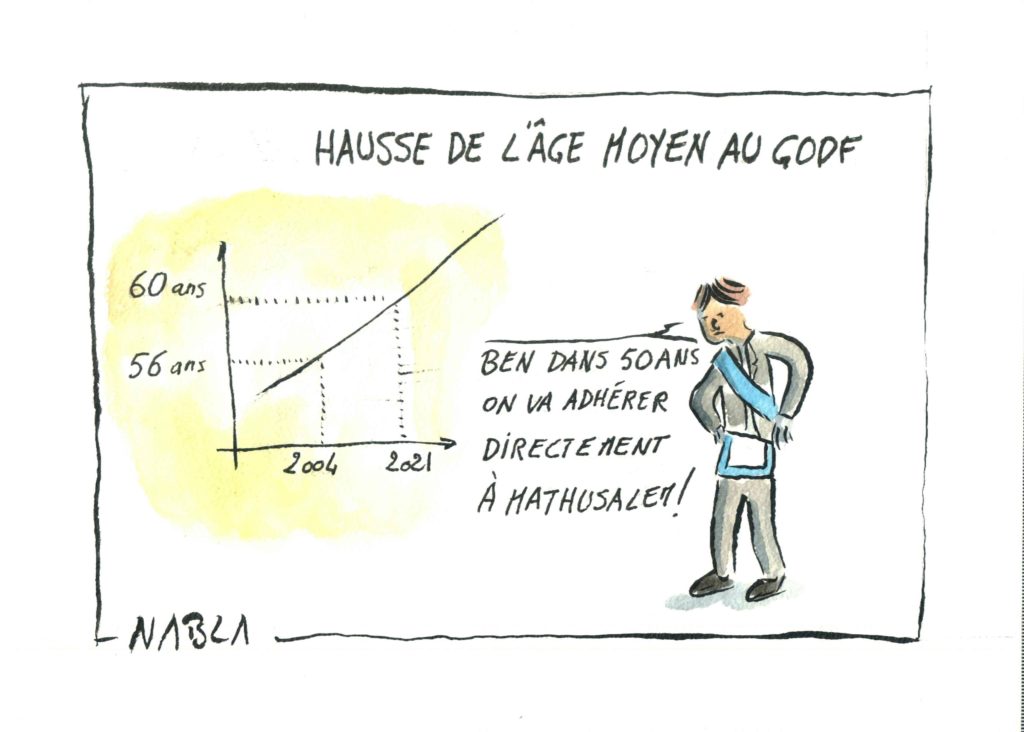 HAUSSE DE L'ÂGE MOYEN AU GODF
60 ans
56 ans
2004 2021
BEN DANS 50 ANS
ON VA ADHÉRER
DIRECTEMENT
À MATHUSALEM!
NABLA